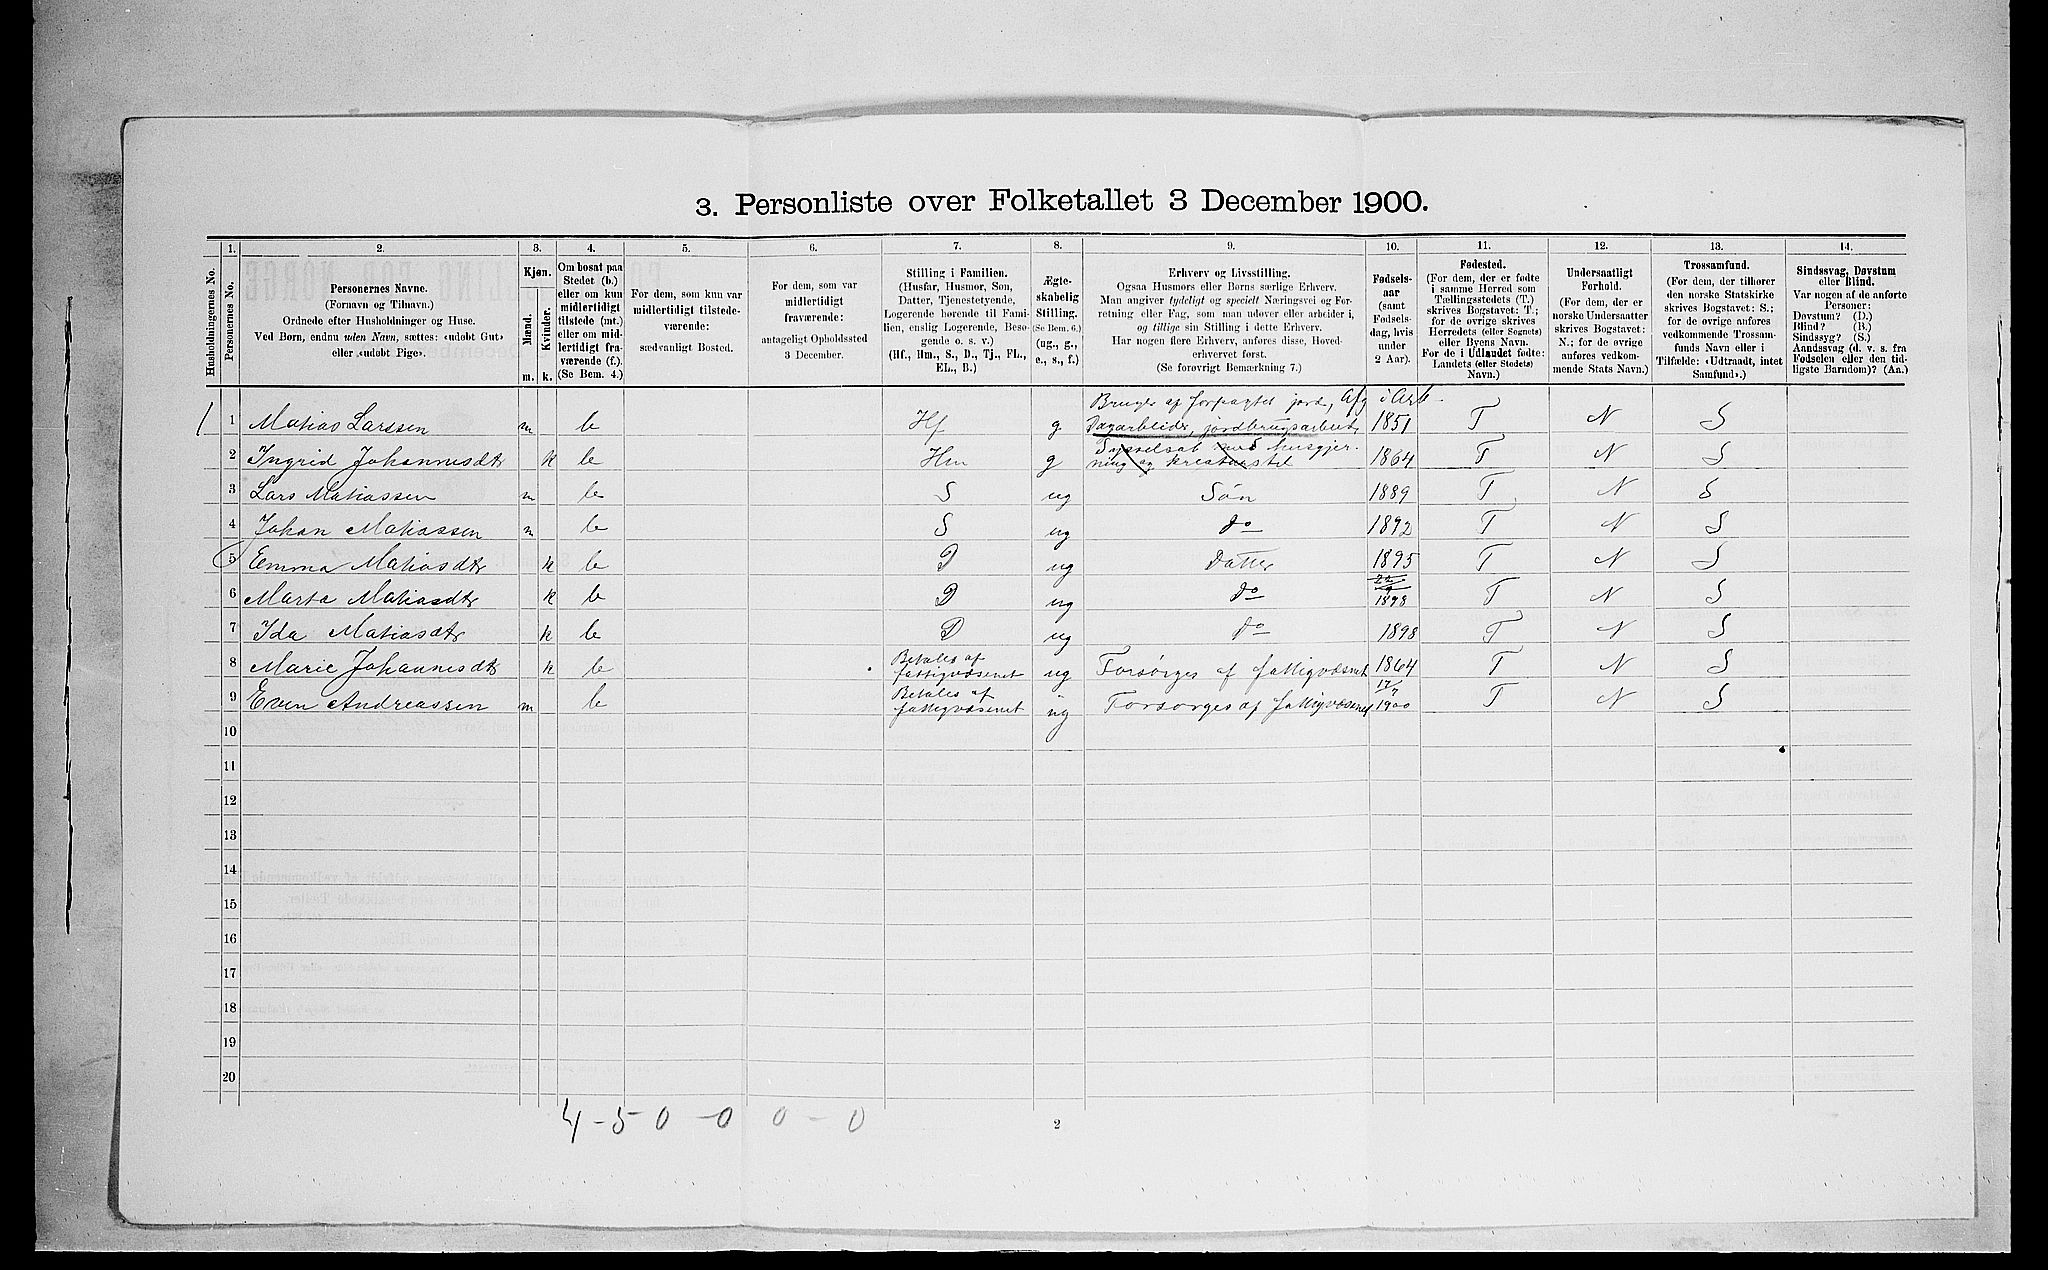 3. Personliste over Folketallet 3 December 1900.
1. 2. 3. 4. 5. 6. 7. 8. 9. 10. 11. 12. 13. 14.
Husholdningernes No.
Personernes No.
Personernes Navne.
(Fornavn og Tilnavn.)
Ordnede efter Husholdninger og Huse.
Ved Børn, endnu uden Navn, sættes: «udøbt Gut»
eller «udøbt Pige».
Kjøn.
Mænd.
Kvinder.
m. k.
Om bosat paa
Stedet (b.)
eller om kun
midlertidigt
tilstede (mt.)
eller om mid-
lertidigt fra-
værende (f.).
(Se Bem. 4.)
For dem, som kun var
midlertidigt tilstede-
værende:
sædvanligt Bosted.
For dem, som var
midlertidigt
fraværende:
antageligt Opholdssted
3 December.
Stilling i Familien.
(Husfar, Husmor, Søn,
Datter, Tjenestetyende,
Logerende hørende til Fami-
lien, enslig Logerende, Besø-
gende o. s. v.)
(Hf., Hm., S., D., Tj., FL.,
EL., B.)
Ægte-
skabelig
Stilling.
(Se Bem. 6.)
(ug., g.,
e., s., f.)
Erhverv og Livsstilling.
Ogsaa Husmors eller Børns særlige Erhverv.
Man angiver tydeligt og specielt Næringsvei og For-
retning eller Fag, som man udøver eller arbeider i,
og tillige sin Stilling i dette Erhverv.
Har nogen flere Erhverv, anføres disse, Hoved-
erhvervet først.
(Se forøvrigt Bemærkning 7.)
Fødsels-
aar
(samt
Fødsels-
dag, hvis
under
2 Aar).
Fødested.
(For dem, der er fødte
i samme Herred som
Tællingsstedets (T.)
skrives Bogstavet: T.;
for de øvrige skrives
Herredets (eller Sognets)
eller Byens Navn.
For de i Udlandet fødte:
Landets (eller Stedets)
Navn.)
Undersaatligt
Forhold.
(For dem, der er
norske Undersaatter
skrives Bogstavet:
N.; for de øvrige
anføres vedkom-
mende Stats Navn.)
Trossamfund.
(For dem, der tilhører
den norske Statskirke
skrives Bogstavet: S.;
for de øvrige anføres
vedkommende Trossam-
funds Navn eller i
Tilfælde: «Udtraadt, intet
Samfund».)
Sindssvag, Døvstum
eller Blind.
Var nogen af de anførte
Personer:
Døvstum? (D.)
Blind? (B.)
Sindssyg? (S.)
Aandssvag (d. v. s. fra
Fødselen eller den tid-
ligste Barndom)? (Aa.)
Bruges af forpagtet jord, Afg i Arb.
1 Matias Larssen m b Hf g Dagarbeider, jordbrugsarbeid, 1851 T N S
Sysselsat med husgjer-
2 Ingrid Johannesdtr k b Hm g ning og kreaturstel 1864 T N S
3 Lars Matiassen m b S ug Søn 1889 T N S
4 Johan Matiassen m b S ug do 1892 T N S
5 Emma Matiasdtr k b D ug Datter 1895 T N S
6 Marta Matiasdtr k b D ug do 1898 T N S
7 Ida Matiasdtr k b D ug do 1898 T N S
Betales af
8 Marie Johannesdtr k b fattigvæsenet ug Forsørges af fattigvæsnet 1864 T N S
Betales af 17/7
9 Even Andreassen m b fattigvæsenet ug Forsørges af fattigvæsnet 1900 T N S
10
11
12
13
14
15
16
17
18
19
20
4 - 5 0 - 0 0 - 0
2